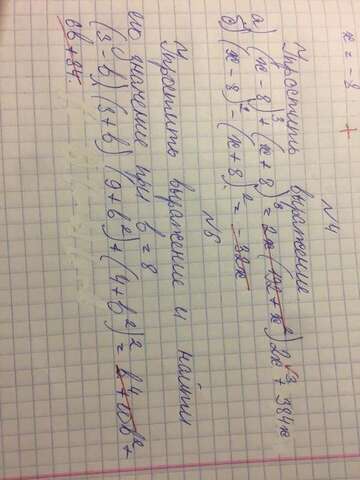 x = - 8 +
№4
Упростить выражение
а) (x - 8)³ + (x + 8)³ = 2x (192 + x²) 2x³ + 384x
б) (x - 8)² - (x + 8)² = - 32x
№6
Упростить выражение и найти
его значение при b = 8
(3 - b)(3 + b)(9 + b²) + (4 + b²)² = b⁴ + 8b² +
8b + 84.